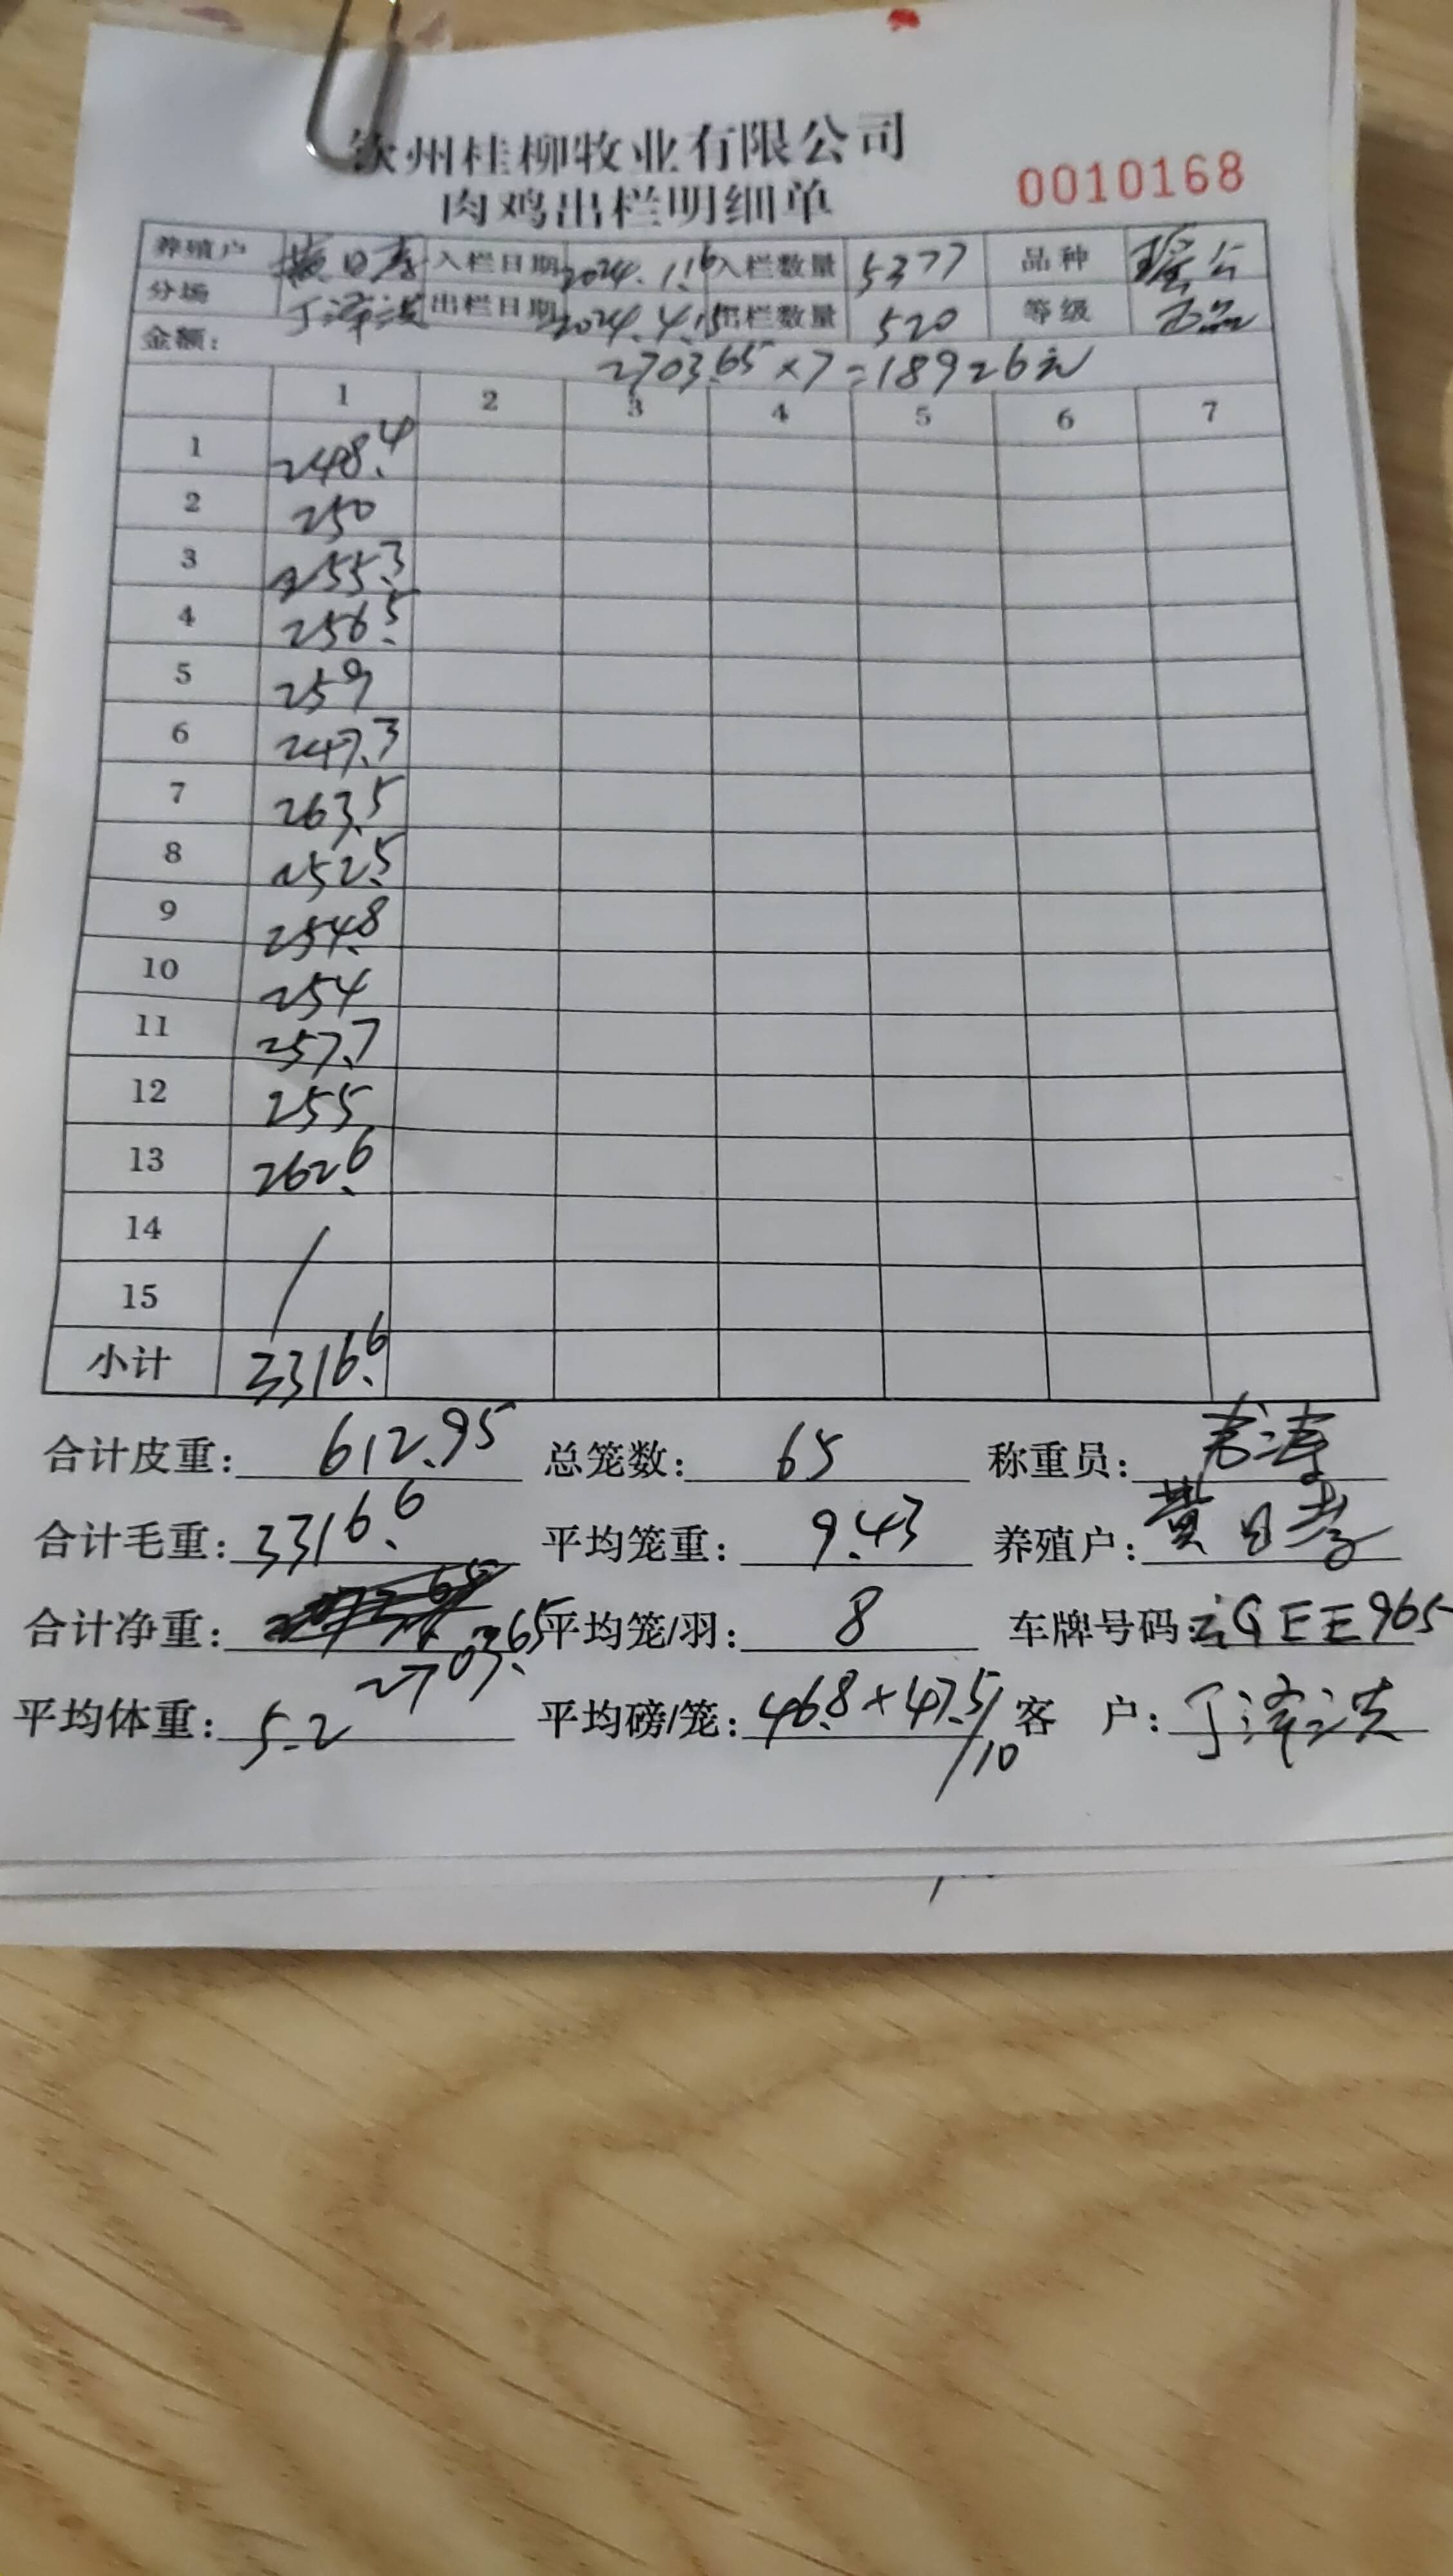 钦州桂柳牧业有限公司
肉鸡出栏明细单
0010168
养殖户 黄日孝 入栏日期 2024.1.16 入栏数量 5377 品种
分场 丁泽洪 出栏日期 2024.4.15 出栏数量 520 等级 正品
金额: 2703.65×7=18926元
1 2 3 4 5 6 7
1 248.4
2 250
3 255.3
4 256.5
5 259
6 247.3
7 263.5
8 252.5
9 254.8
10 254
11 257.7
12 255
13 262.6
14 /
15
小计 3316.6
合计皮重: 612.95 总笼数: 65 称重员:
合计毛重: 3316.6 平均笼重: 9.43 养殖户: 黄日孝
合计净重: 2703.65 平均笼/羽: 8 车牌号码: 云GEE965
平均体重: 5.2 平均磅/笼: 46.8×47.5/10 客 户: 丁泽洪